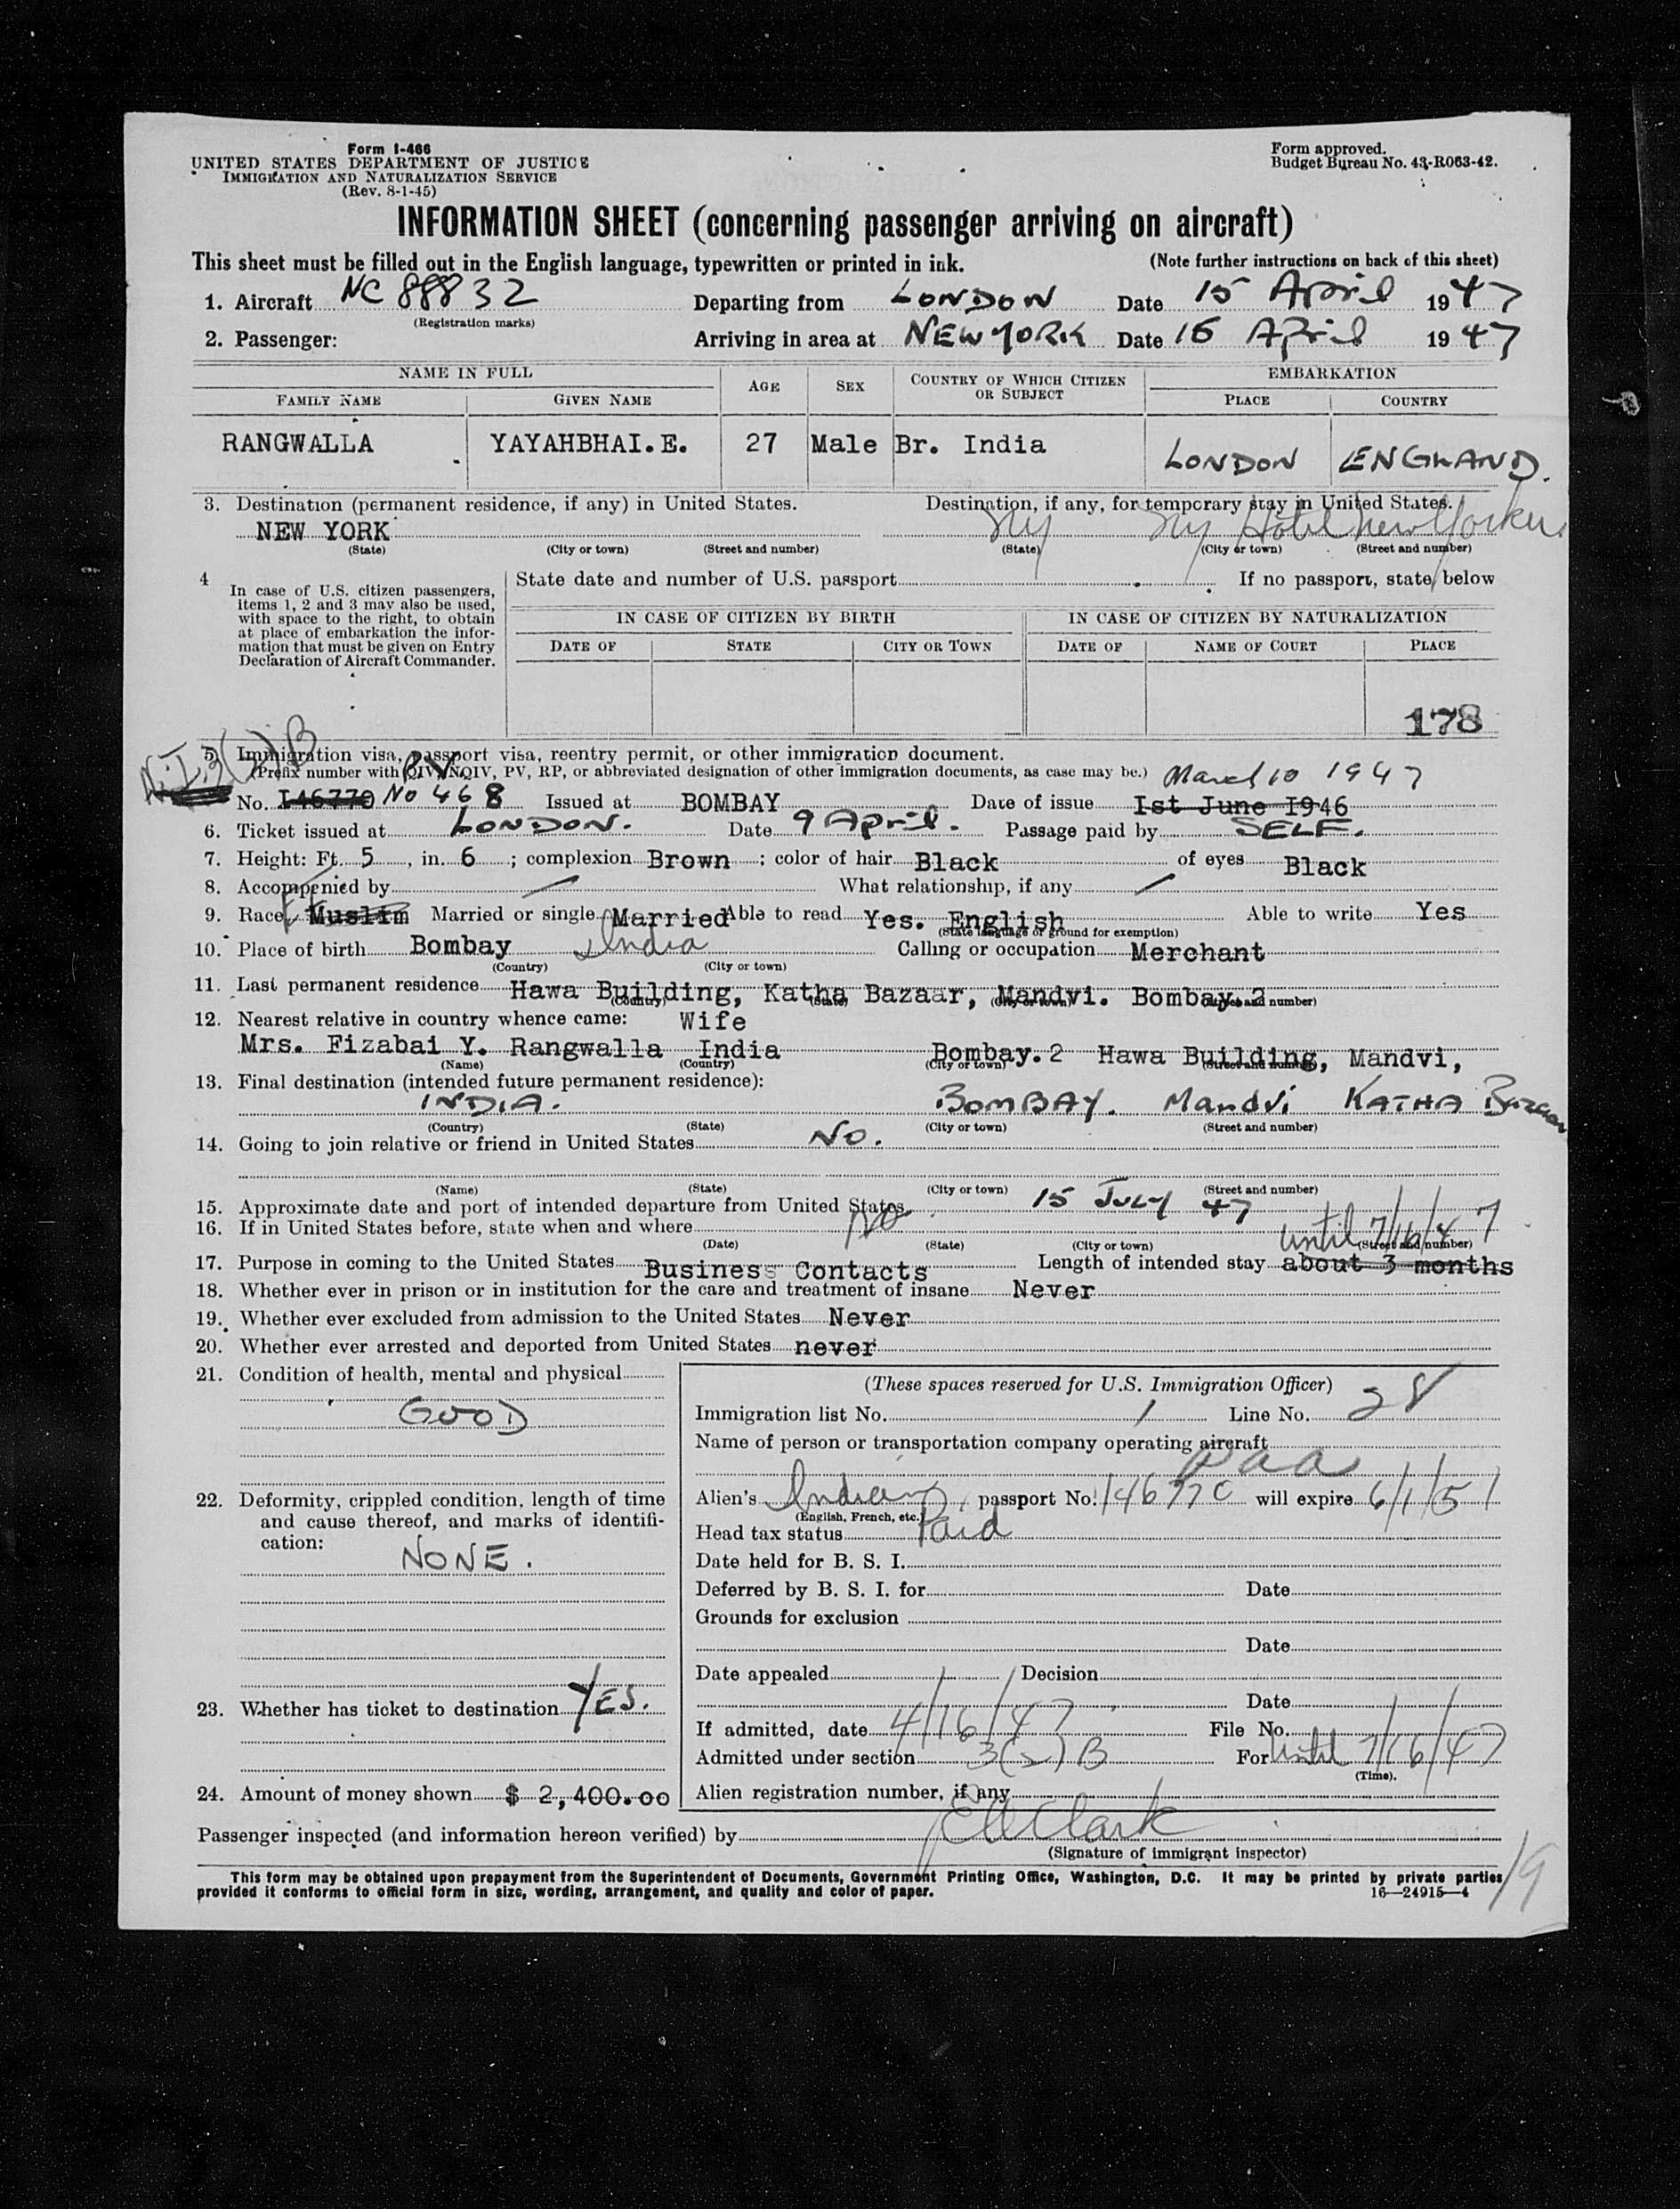 Form I-466
UNITED STATES DEPARTMENT OF JUSTICE
IMMIGRATION AND NATURALIZATION SERVICE
(Rev. 8-1-45)
Form approved.
Budget Bureau No. 43-R063-42.
INFORMATION SHEET (concerning passenger arriving on aircraft)
This sheet must be filled out in the English language, typewritten or printed in ink. (Note further instructions on back of this sheet)
1. Aircraft NC 88832 Departing from LONDON Date 15 April 1947
(Registration marks)
2. Passenger: Arriving in area at NEW YORK Date 16 April 1947
NAME IN FULL AGE SEX COUNTRY OF WHICH CITIZEN OR SUBJECT EMBARKATION
FAMILY NAME GIVEN NAME PLACE COUNTRY
RANGWALLA YAYAHBHAI.E. 27 Male Br. India LONDON ENGLAND.
3. Destination (permanent residence, if any) in United States. Destination, if any, for temporary stay in United States.
NEW YORK NY NY Hotel New Yorker
(State) (City or town) (Street and number) (State) (City or town) (Street and number)
4 In case of U.S. citizen passengers, items 1, 2 and 3 may also be used, with space to the right, to obtain at place of embarkation the information that must be given on Entry Declaration of Aircraft Commander.
State date and number of U.S. passport If no passport, state below
IN CASE OF CITIZEN BY BIRTH IN CASE OF CITIZEN BY NATURALIZATION
DATE OF STATE CITY OR TOWN DATE OF NAME OF COURT PLACE
178
N.I. 3(2) B
5. Immigration visa, passport visa, reentry permit, or other immigration document.
(Prefix number with QIV, NQIV, PV, RP, or abbreviated designation of other immigration documents, as case may be.) March 10 1947
P.V.
No. I46770 No 468 Issued at BOMBAY Date of issue Ist June I946
6. Ticket issued at LONDON. Date 9 April. Passage paid by SELF.
7. Height: Ft. 5, in. 6; complexion Brown; color of hair Black of eyes Black
8. Accompanied by What relationship, if any
9. Race Muslim Married or single Married Able to read Yes. English Able to write Yes
(State language or ground for exemption)
10. Place of birth Bombay India Calling or occupation Merchant
(Country) (City or town)
11. Last permanent residence Hawa Building, Katha Bazaar, Mandvi. Bombay.2
(Country) (State) (City or town) (Street and number)
12. Nearest relative in country whence came: Wife
Mrs. Fizabai Y. Rangwalla India Bombay.2 Hawa Building, Mandvi,
(Name) (Country) (City or town) (Street and number)
13. Final destination (intended future permanent residence):
INDIA. BOMBAY. Mandvi KATHA Bazaar
(Country) (State) (City or town) (Street and number)
14. Going to join relative or friend in United States NO.
(Name) (State) (City or town) (Street and number)
15. Approximate date and port of intended departure from United States 15 JULY 47
16. If in United States before, state when and where No
(Date) (State) (City or town) (Street and number)
until 7/16/47
17. Purpose in coming to the United States Business Contacts Length of intended stay about 3 months
18. Whether ever in prison or in institution for the care and treatment of insane Never
19. Whether ever excluded from admission to the United States Never
20. Whether ever arrested and deported from United States never
21. Condition of health, mental and physical
GOOD
22. Deformity, crippled condition, length of time and cause thereof, and marks of identification:
NONE.
23. Whether has ticket to destination YES.
24. Amount of money shown $ 2,400.00
(These spaces reserved for U.S. Immigration Officer)
Immigration list No. 1 Line No. 28
Name of person or transportation company operating aircraft
paa
Alien's Indian passport No. 146770 will expire 6/1/51
(English, French, etc.)
Head tax status Paid
Date held for B. S. I.
Deferred by B. S. I. for Date
Grounds for exclusion
Date
Date appealed Decision
Date
If admitted, date 4/16/47 File No.
Admitted under section 3(2) B For until 7/16/47
(Time).
Alien registration number, if any
Passenger inspected (and information hereon verified) by E W Clark
(Signature of immigrant inspector)
This form may be obtained upon prepayment from the Superintendent of Documents, Government Printing Office, Washington, D.C. It may be printed by private parties
provided it conforms to official form in size, wording, arrangement, and quality and color of paper. 16—24915—4
19